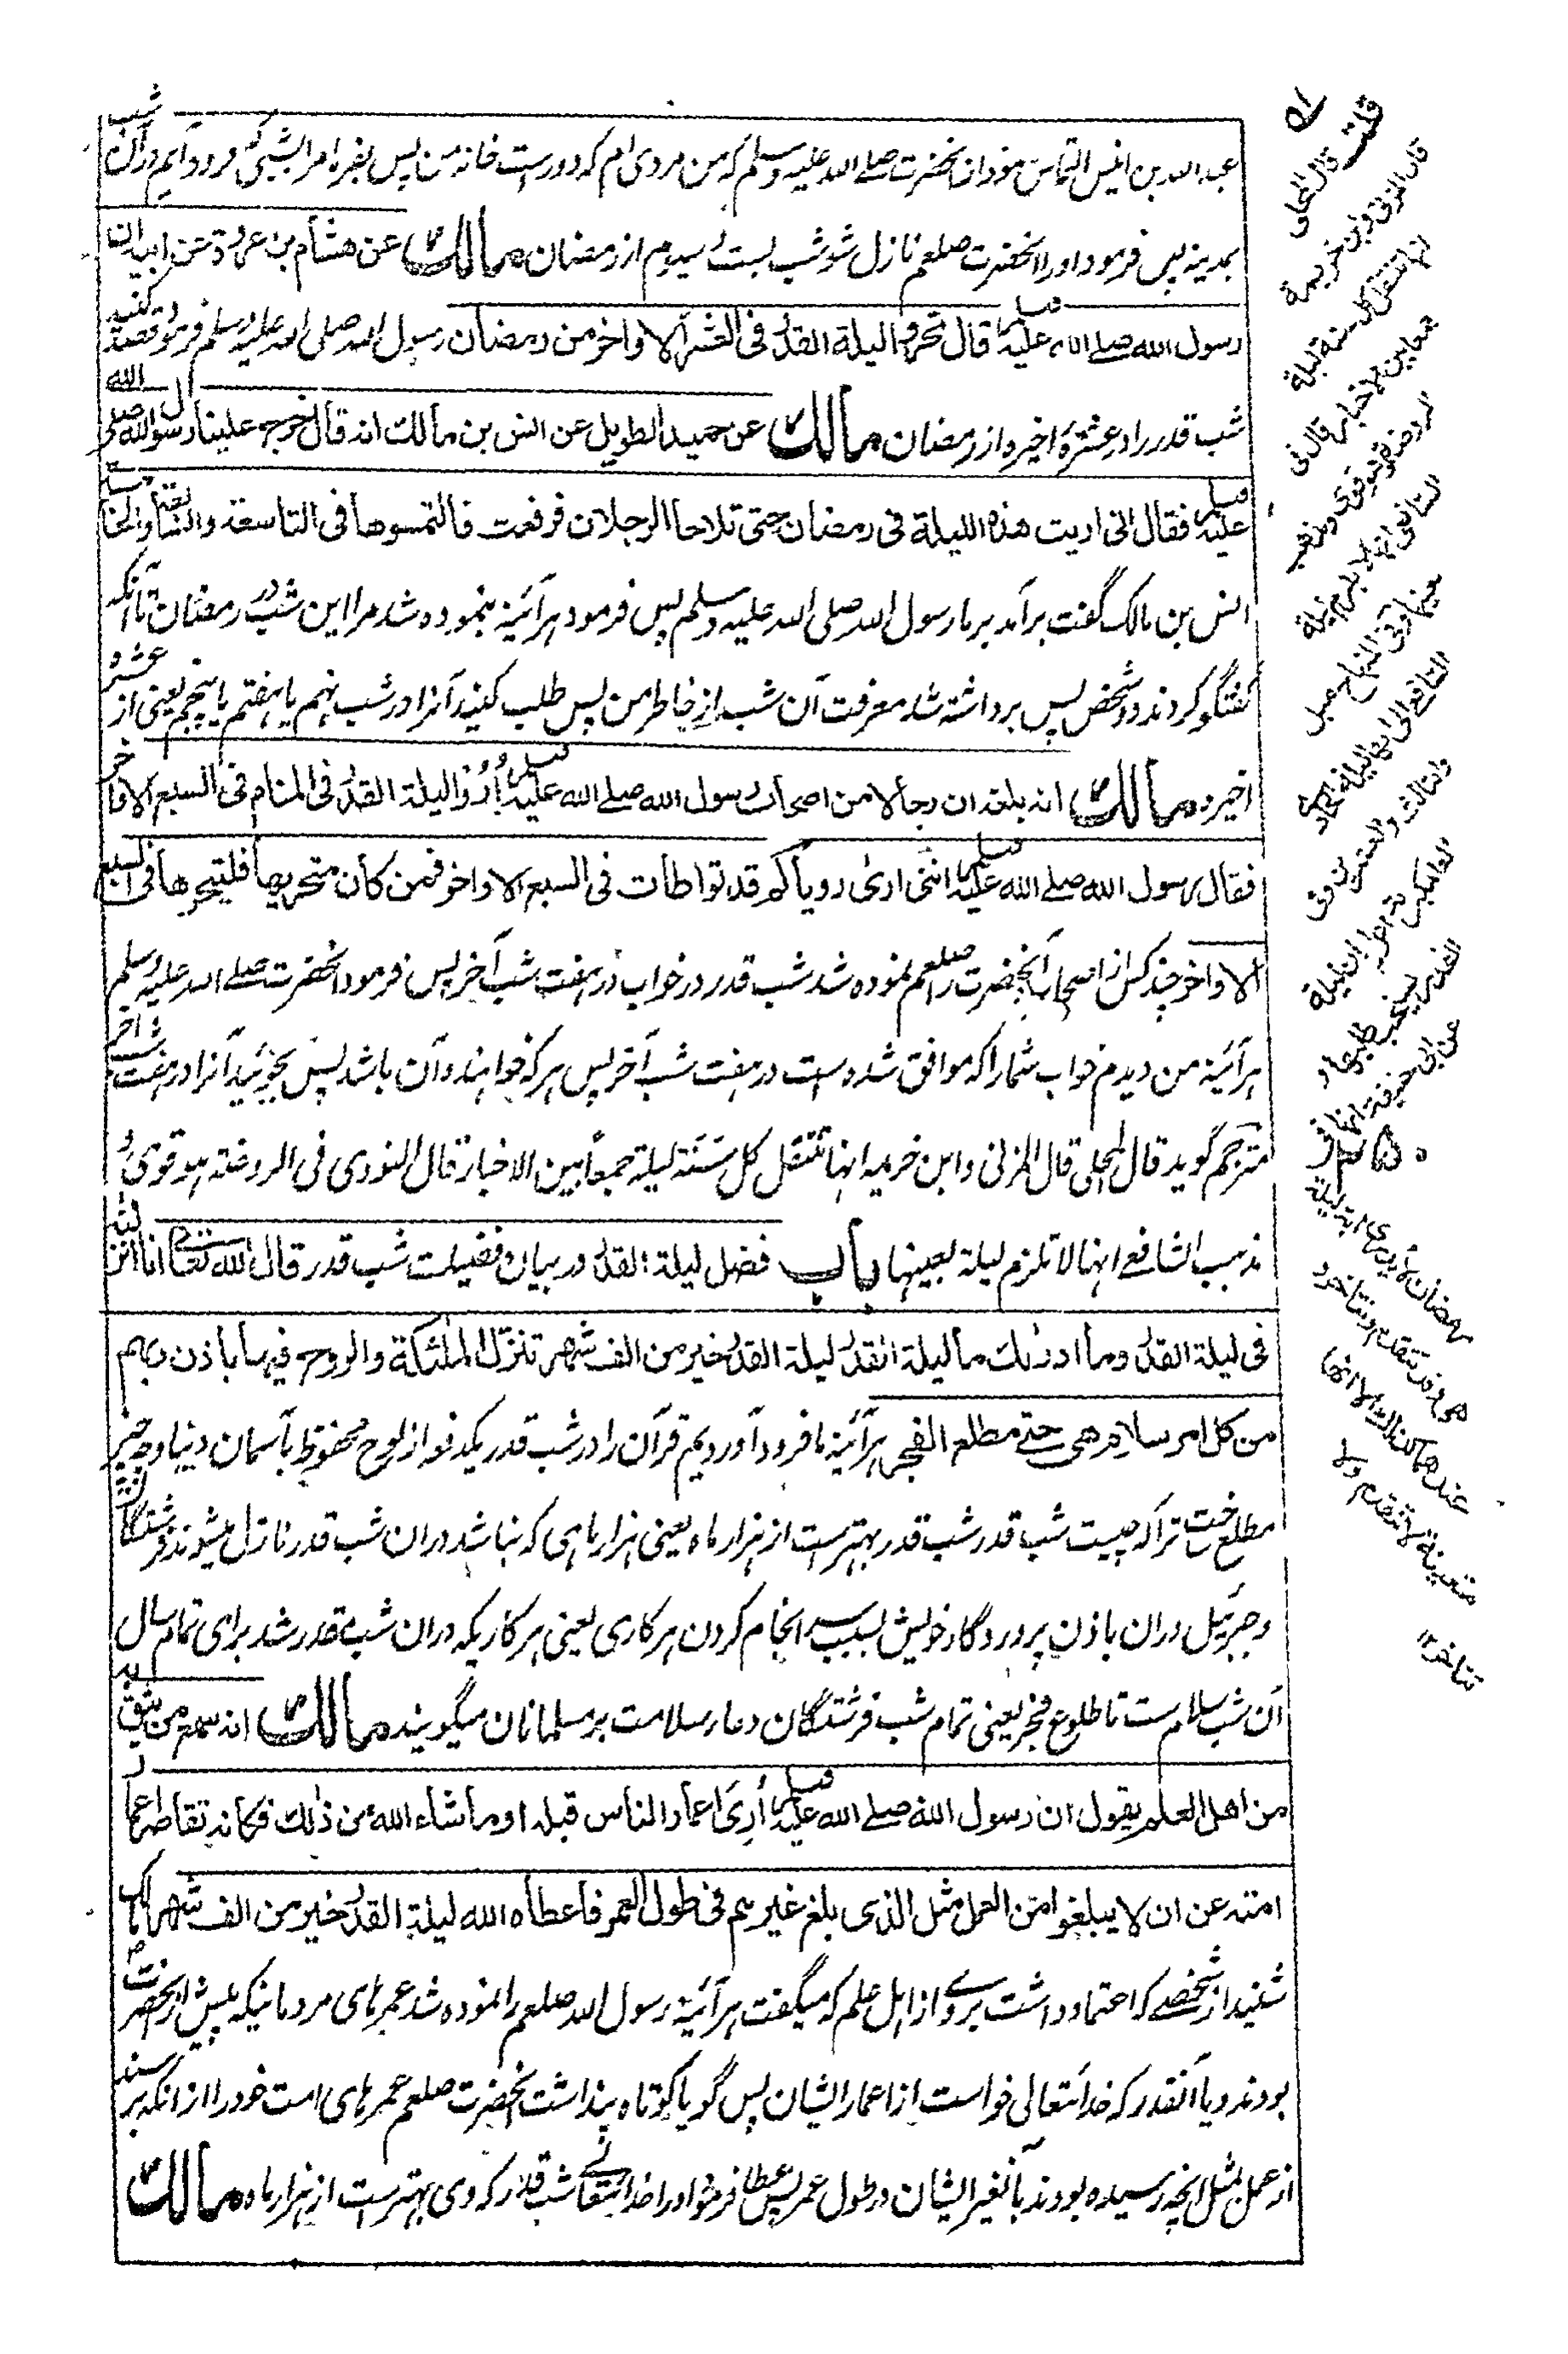 عبد الله بن انیس التماس نمود از آنحضرت صلے الله علیه وسلم که من مردی ام که دورست خانه من پس بفرما مرا بشبی که فرود آیم در آن شب
بمدینه پس فرمود او را آنحضرت صلعم نازل شو شب بست و سیوم از رمضان مالك عن هشام بن عروة عن ابیه ان
رسول الله صلے الله علیه وسلم قال تحروا لیلة القدر فی العشر الاواخر من رمضان رسول الله صلی الله علیه وسلم فرمود قصد کنید
شب قدر را در عشرۀ اخیره از رمضان مالك عن حمید الطویل عن انس بن مالك انه قال خرج علینا رسول الله صلے الله
علیه وسلم فقال انی اریت هذه اللیلة فی رمضان حتی تلاحا الرجلان فرفعت فالتمسوها فی التاسعة والسابعة والخامسة
انس بن مالک گفت برآمد بر ما رسول الله صلی الله علیه وسلم پس فرمود هر آئینه بنموده شد مرا این شب در رمضان تا آنکه
گفتگو کردند دو شخص پس برداشته شد معرفت آن شب از خاطر من پس طلب کنید آنرا در شب نهم یا هفتم یا پنجم یعنی از عشره
اخیره مالك انه بلغه ان رجالا من اصحاب رسول الله صلے الله علیه وسلم اُرُوا لیلة القدر فی المنام فی السبع الاواخر
فقال رسول الله صلے الله علیه وسلم انی اری رویاکم قد تواطات فی السبع الاواخر فمن کان متحریها فلیتحرها فی السبع
الاواخر چند کس از اصحاب آنحضرت صلعم را نموده شد شب قدر در خواب در هفت شب آخر پس فرمود آنحضرت صلے الله علیه وسلم
هر آئینه من دیدم خواب شما را که موافق شده است در هفت شب آخر پس هر که خواهنده آن باشد پس بجوئید آنرا در هفت شب آخر
مترجم گوید قال المحلی قال المزنی وابن خزیمه انها تنتقل کل سَنَة لیلة جمعاً بین الاخبار قال النووی فی الروضة هو قوی و
مذهب الشافعے انها لا تلزم لیلة بعینها باب فضل لیلة القدر در بیان فضیلت شب قدر قال الله تعالی انا انزلنه
فی لیلة القدر وما ادرٰك ما لیلة القدر لیلة القدر خیر من الف شهر تنزّل الملٰئکة والروح فیها باذن ربهم
من کل امر سلام هی حتے مطلع الفجر هر آئینه ما فرود آوردیم قرآن را در شب قدر یکدفعه از لوح محفوظ بآسمان دنیا و چه چیز
مطلع ساخت ترا که چیست شب قدر شب قدر بهترست از هزار ماه یعنی هزار ماهی که نباشد دران شب قدر نازل میشوند فرشتگان
و جبرئیل دران باذن پروردگار خویش بسبب سرانجام کردن هر کاری یعنی هر کاریکه دران شب مقدر شد برای تمام سال
آن شب سلام ست تا طلوع فجر یعنی تمام شب فرشتگان دعاء سلامت بر مسلمانان میگویند مالك انه سمع من یثق به
من اهل العلم یقول ان رسول الله صلے الله علیه وسلم اُرِیَ اعمار الناس قبله او ما شاء الله من ذٰلك فکانه تقاصر اعمار
امته عن ان لا یبلغوا من العمل مثل الذی بلغ غیرهم فی طول العمر فاعطاه الله لیلة القدر خیر من الف شهر مالک
شنید از شخصے که اعتماد داشت بر وے از اهل علم که میگفت هر آئینه رسول الله صلعم را نموده شد عمرهای مردمانیکه پیش از آنحضرت
بودند و یا آنقدر که خدا یتعالی خواست از اعمار ایشان پس گویا کوتاه پنداشت آنحضرت صلعم عمرهای امت خود را از انکه برسند
از عمل بمثل انچه رسیده بودند بآن غیر ایشان در طول عمر پس عطا فرمود او را خدا یتعالے شب قدر که وی بهترست از هزار ماه مالك
قلت قال المحلی
قال المزنی وابن خزیمة
انها تنتقل کل سنة لیلة
جمعا بین الاخبار قال فی
الروضة هو قوی ومذهب
الشافعی انها لا تلزم لیلة
بعینها
رمضان
متعینة لا تتقدم ولا
تتاخر ۱۲